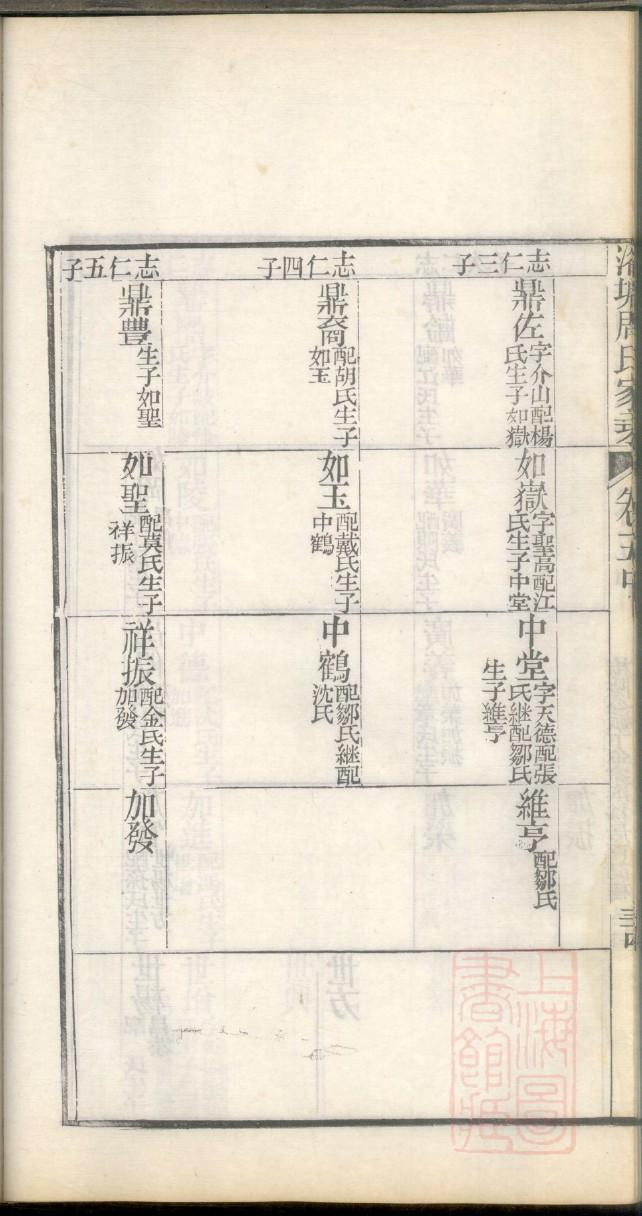 周氏家
卷五中
志仁三子
鼎佐字介山配楊
氏生子如嶽
如嶽字聖嵩配江
氏生子中堂
中堂字天德配張
氏継配鄒氏
生子維亨
維亨配鄒氏
志仁四子
鼎裔配胡氏生子
如玉
如玉配戴氏生子
中鶴
中鶴配鄒氏継配
沈氏
志仁五子
鼎豊生子如聖
如聖配莫氏生子
祥振
祥振配金氏生子
加發
加發
上海圖
書館藏